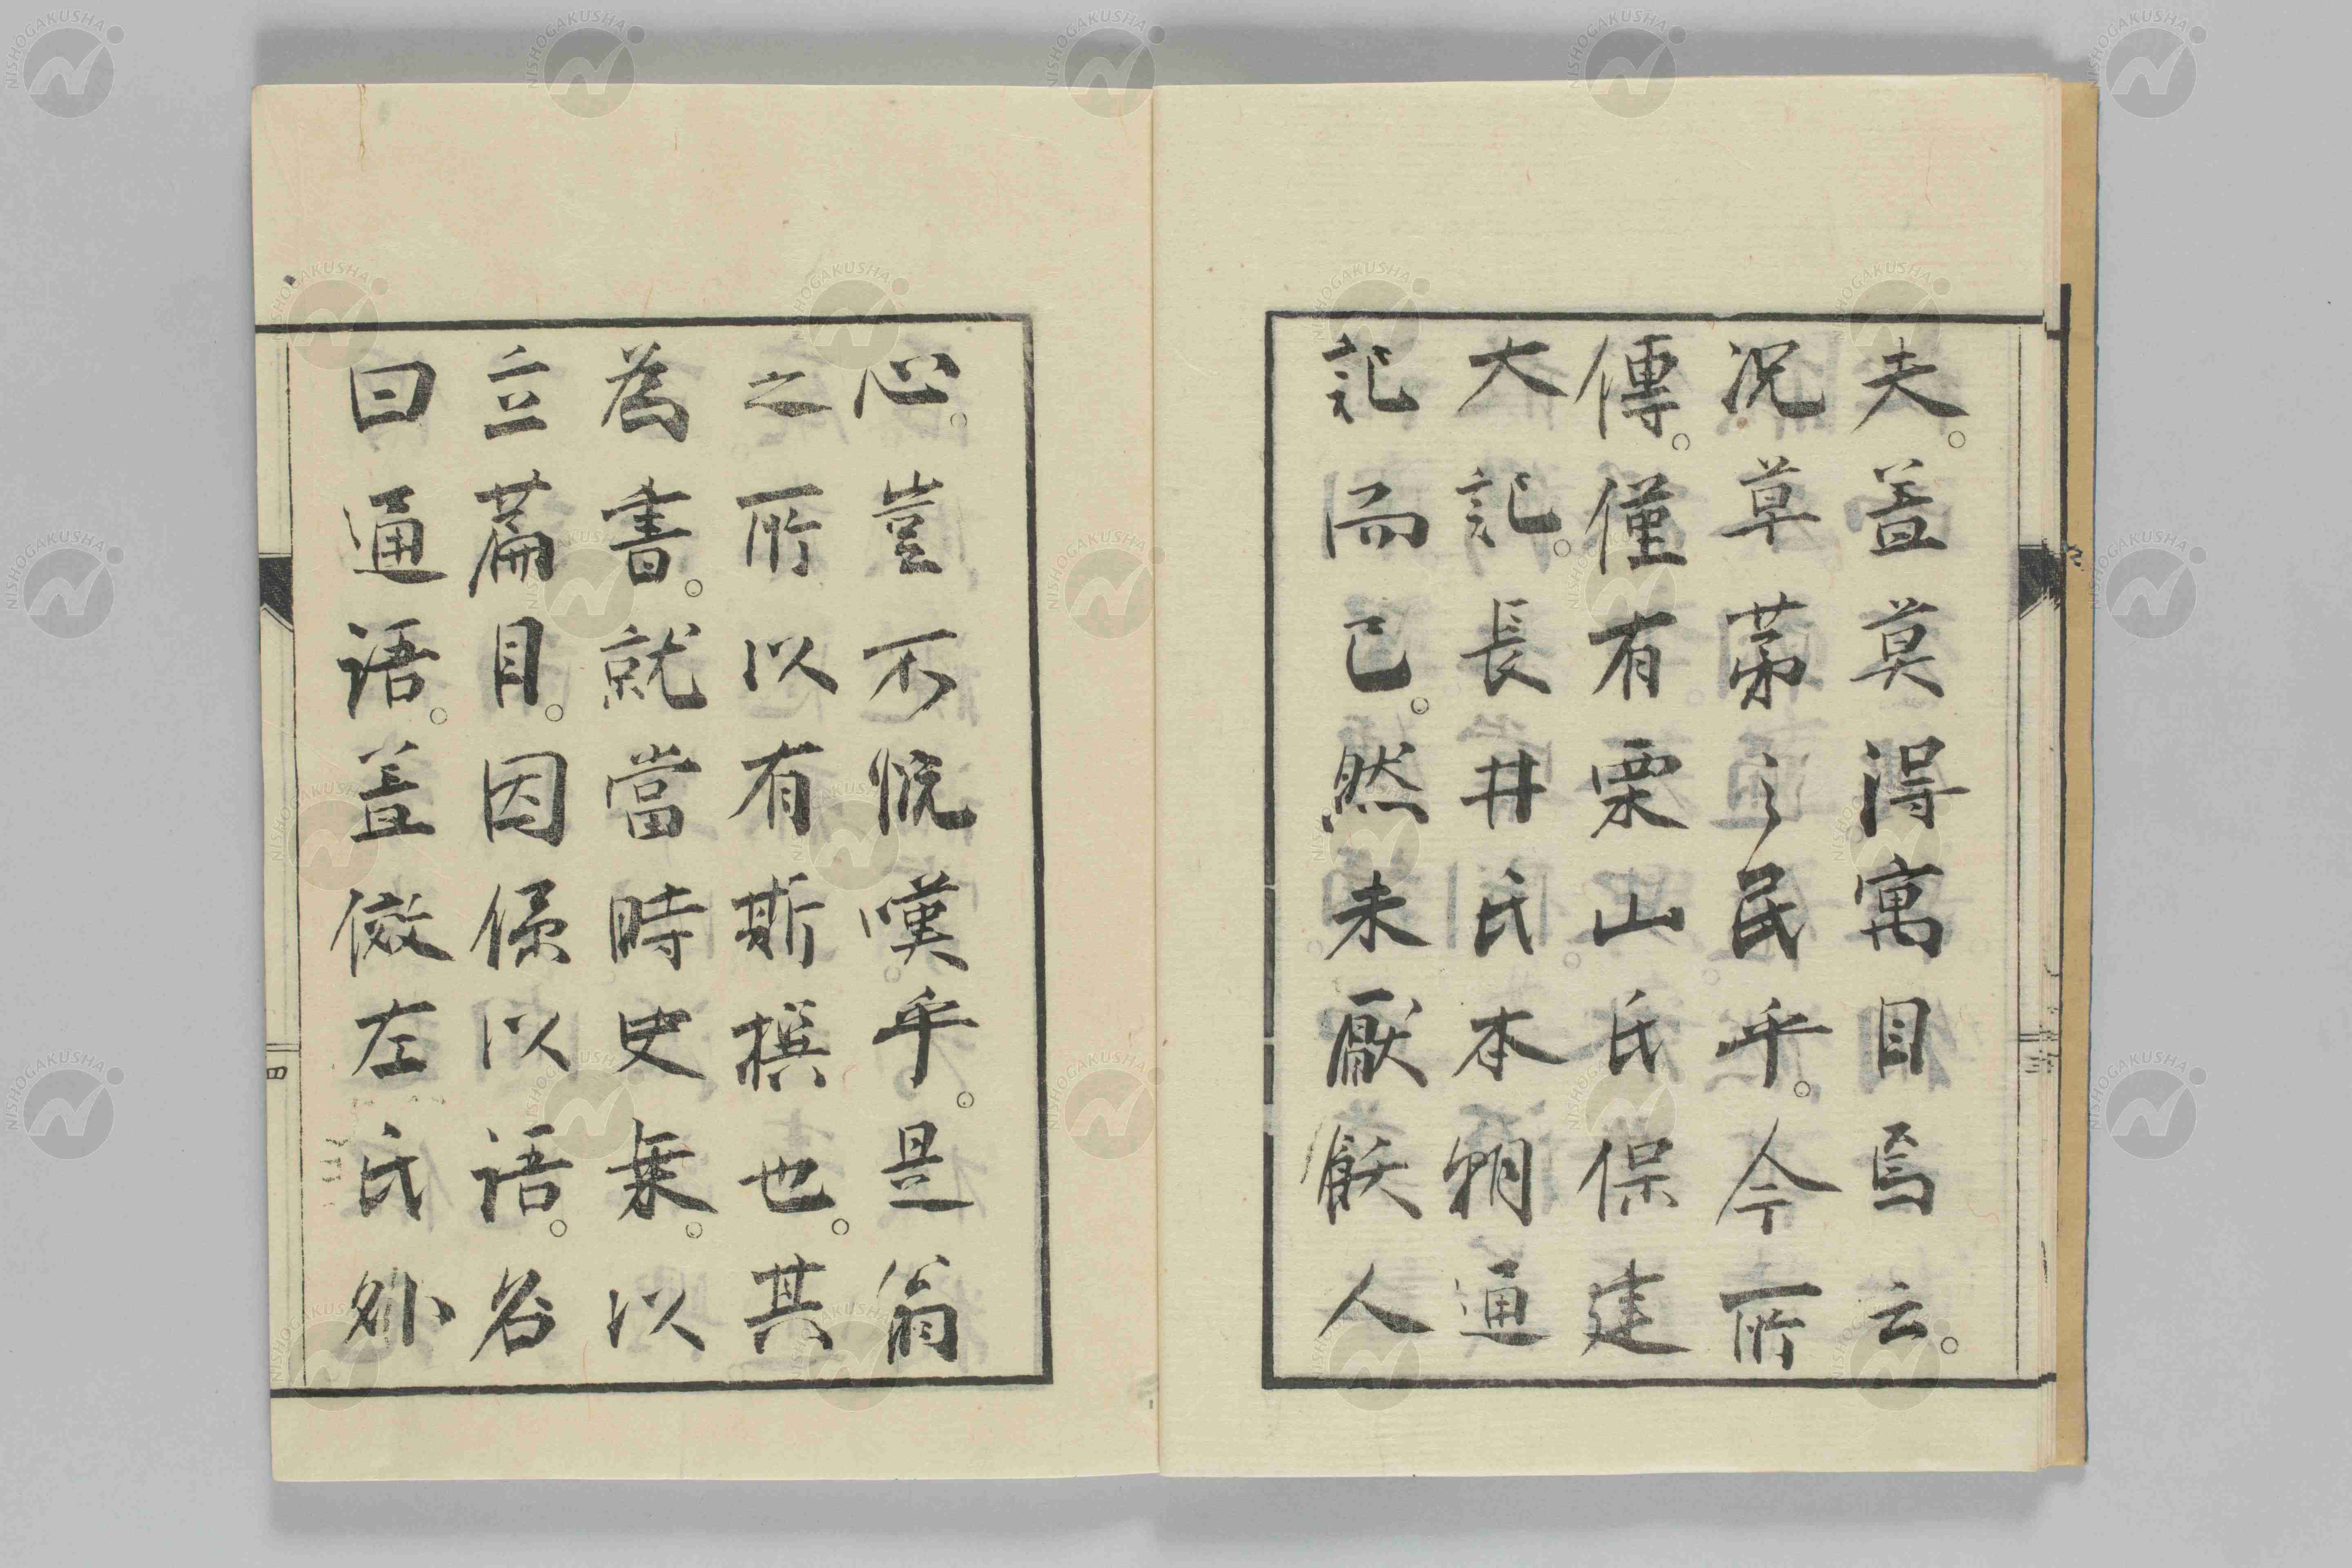 夫。蓋莫得寓目焉云。
況草茅之民乎。今所
傳。僅有栗山氏保建
大記。長井氏本朝通
記而已。然未厭飫人
心。豈不慨嘆乎。是翁
之所以有斯撰也。其
為書。就當時史乗。以
立篇目。因係以語。名
曰通語。蓋倣左氏外
NISHOGAKUSHA